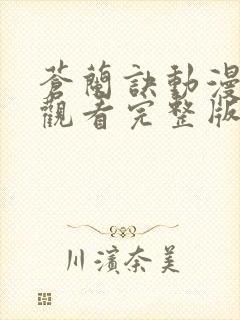 蒼蘭訣動漫
觀看完整版
川濱奈美